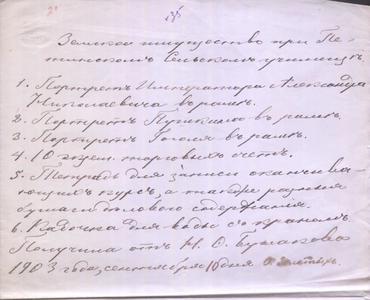 Земское имущество при Пе-
тинском Сельском училищѣ.
1. Портретъ Императора Александра
Николаевича въ рамѣ.
2. Портретъ Пушкина въ рамѣ.
3. Портретъ Гоголя въ рамѣ.
4. 10 экзем. торговыхъ счетъ.
5. Тетрадь для записи оканчива-
ющихъ курсъ, а также разныя
бумаги дѣлового содержанія.
6. Кадочка для воды съ краномъ
Получила отъ Н. Ѳ. Бунакова
1903 года, сентября 10 дня